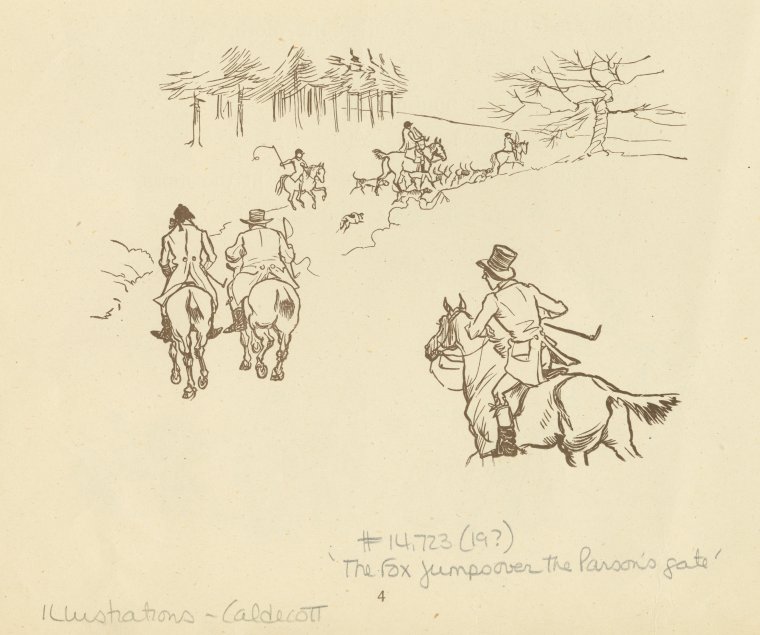 # 14,723 (19?)
'The Fox Jumps over the Parson's gate'
4
Illustrations - Caldecott